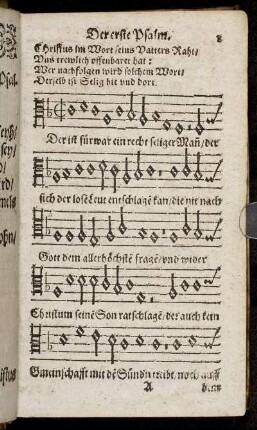 Der erste Psalm.
Christus im Wort seins Vatters Raht/
Uns trewlich offenbaret hat:
Wer nachfolgen wird solchem Wort/
Derselb ist Selig hie und dort.
Der ist fürwar ein recht seliger Mañ/der
sich der losẽ Leut entschlagẽ kan/die nit nach
Gott dem allerhöchstẽ fragẽ/und wider
Christum seinẽ Son ratschlagẽ/der auch kein
Gmeinschafft mit dẽ Sündn treibt/noch auff
A